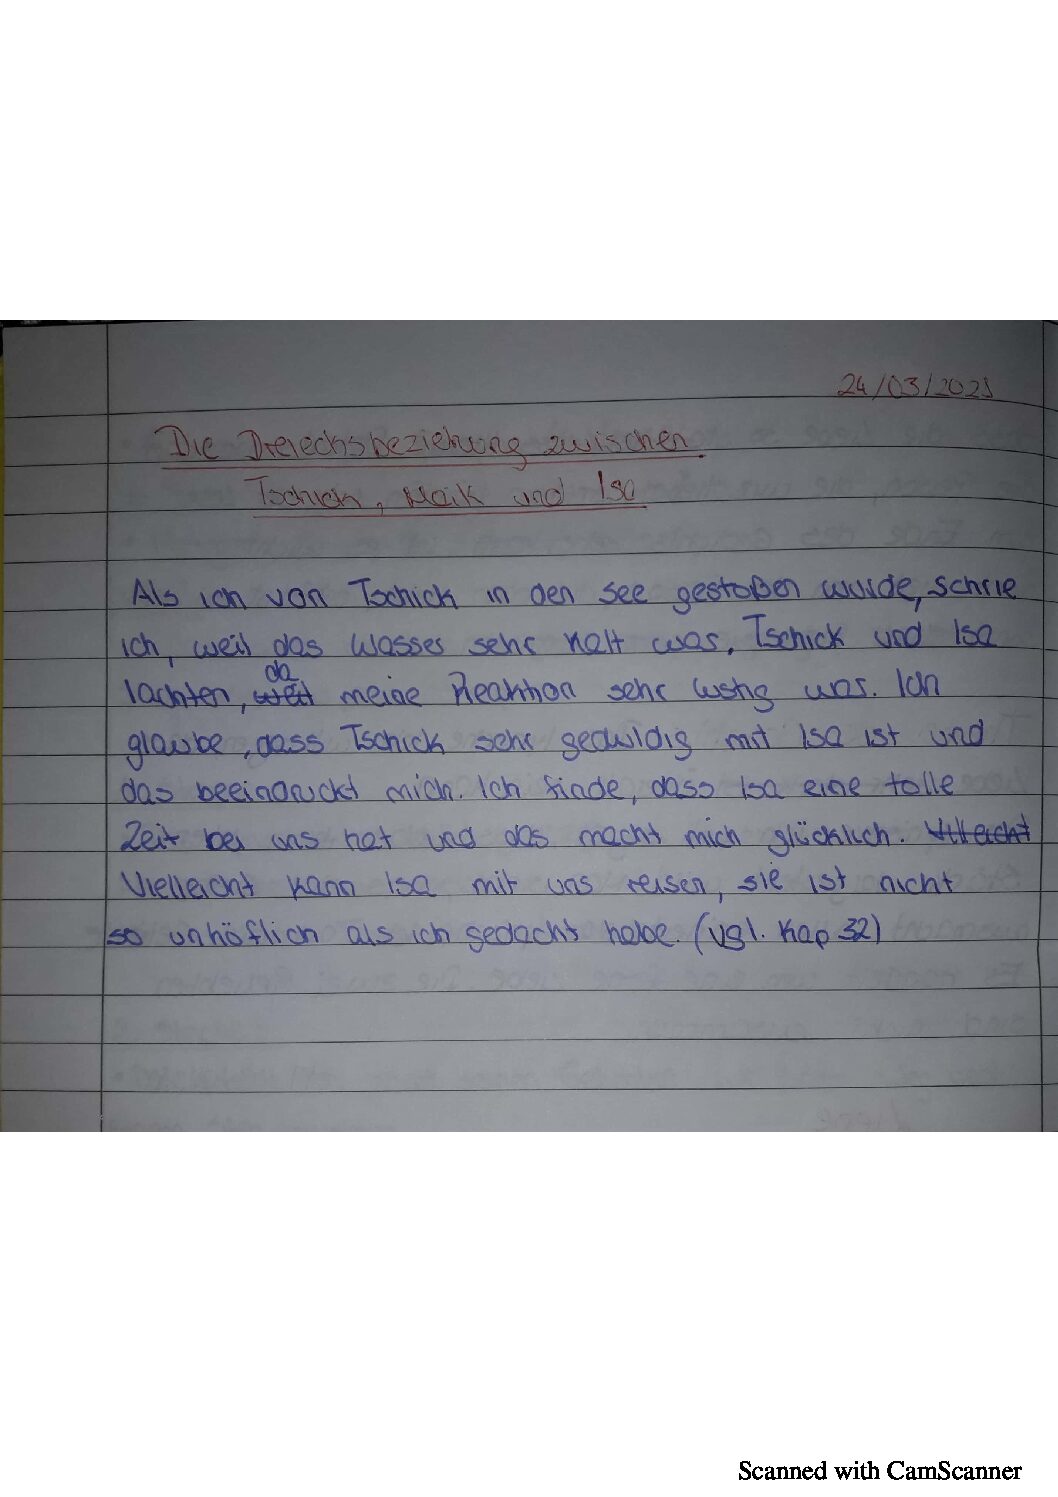 24/03/2025
Die Dreiecksbeziehung zwischen
Tschick, Maik und Isa
Als ich von Tschick in den see gestoßen wurde, schrie
ich, weil das Wasser sehr kalt war. Tschick und Isa
lachten, weil da meine Reaktion sehr lustig war. Ich
glaube, dass Tschick sehr geduldig mit Isa ist und
das beeindruckt mich. Ich finde, dass Isa eine tolle
Zeit bei uns hat und das macht mich glücklich. Villeicht
Vielleicht kann Isa mit uns reisen, sie ist nicht
so unhöflich als ich gedacht habe. (vgl. Kap 32)
Scanned with CamScanner